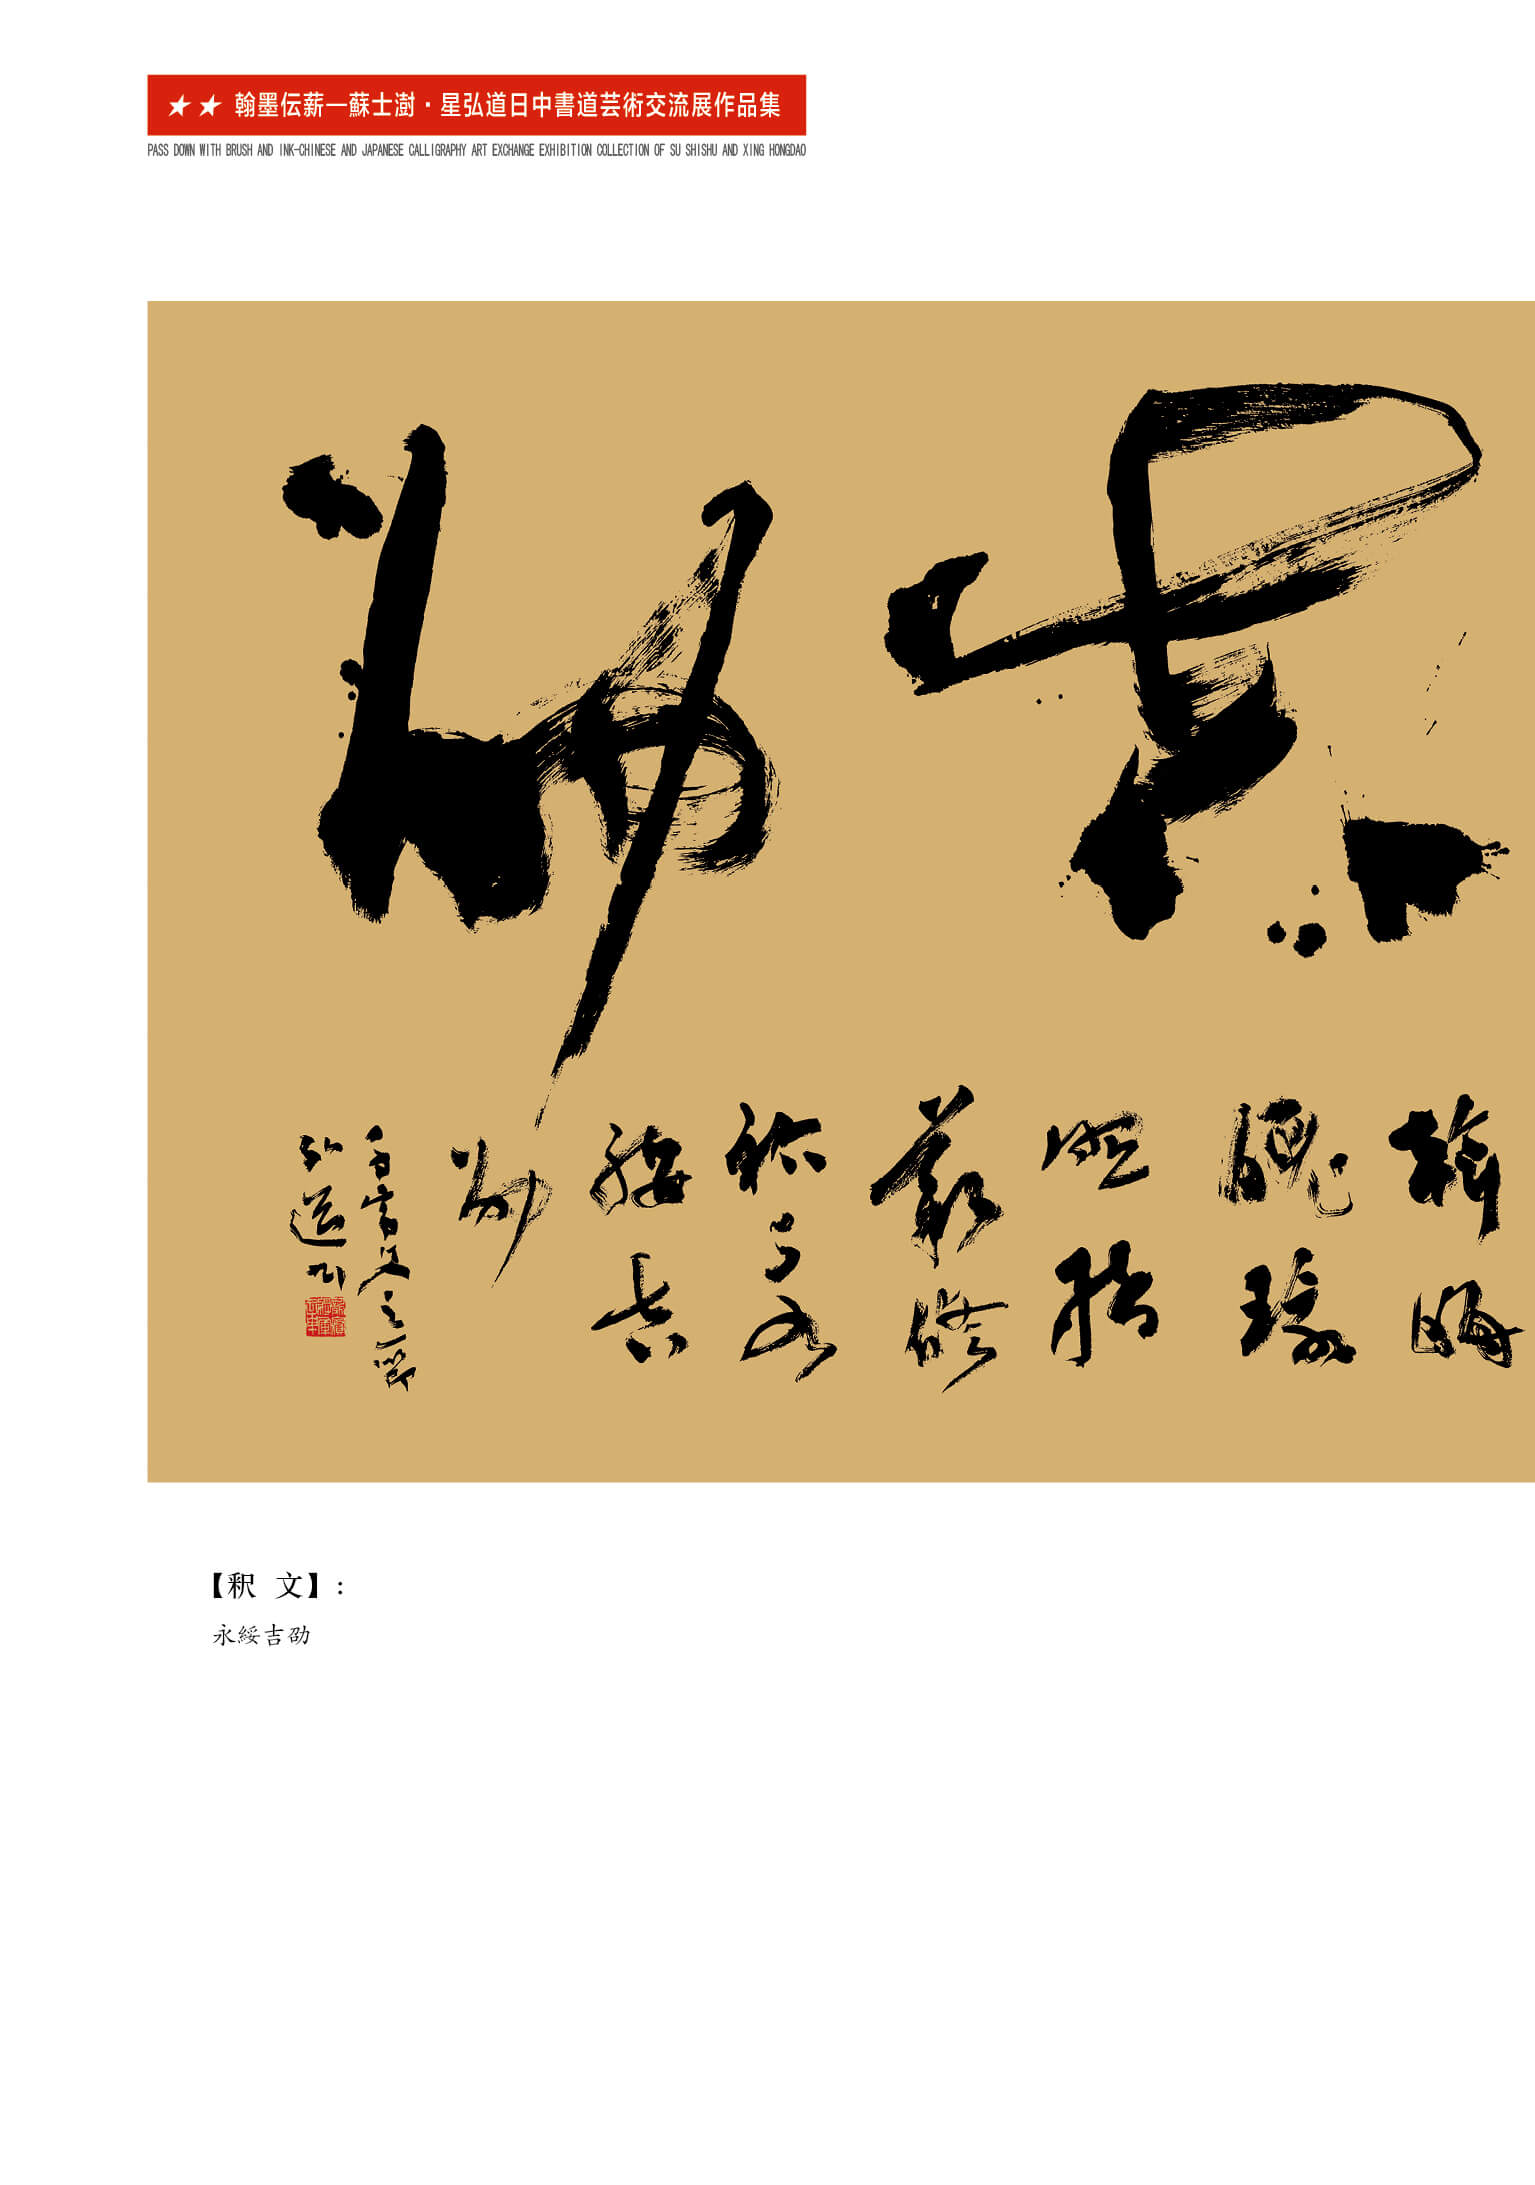 ★★ 翰墨伝薪—蘇士澍·星弘道日中書道芸術交流展作品集
PASS DOWN WITH BRUSH AND INK-CHINESE AND JAPANESE CALLIGRAPHY ART EXCHANGE EXHIBITION COLLECTION OF SU SHISHU AND XING HONGDAO
吉劭
斡晦
魄環
照指
薪修
祜永
綏吉
劭
千字文之一節
弘道
【釈 文】：
永綏吉劭